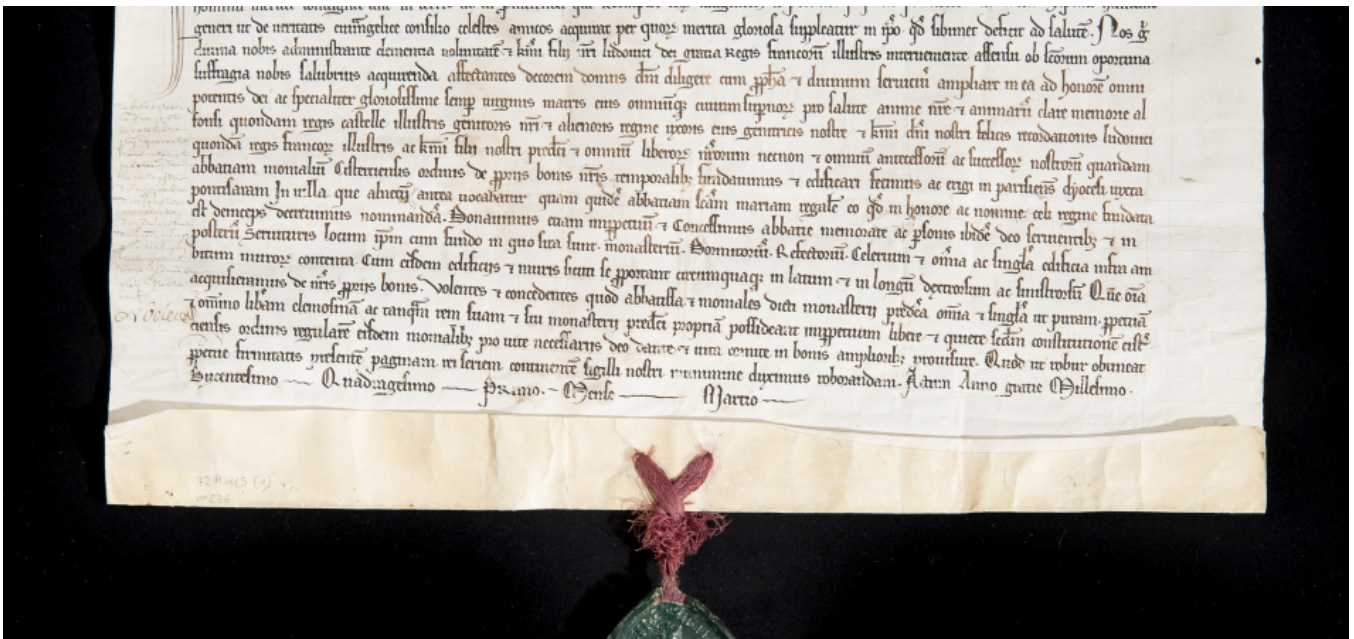 generi ut de ueritatis euu̅ngelice consilio celestes amicos acquirat per quoꝝ merita gloriosa suppleatur in ip̅o qd̅ sibimet deficit ad salute̅. Nos g̊
diuina nobis administrante clementia uoluntate̅ ⁊ km̅i filij nr̅i ludouici dei gratia Regis francorū illustris interueniente assensu ob sc̅orum oportuna
suffragia nobis salubrius acquirenda affectantes decorem domus dn̅i diligere cum ꝓph̅a ⁊ diuinum seruiciū ampliare in ea ad honore̅ omni
potentis dei ac specialiter gloriosissime semꝑ uirginis matris eius omniūqꝫ ciuium suꝑnoꝝ pro salute anime nr̅e ⁊ animarū clare memorie al
fonsi quondam regis castelle illustris genitoris nr̅i ⁊ alienoris regine uxoris eius genitricis nostre ⁊ km̅i dn̅i nostri felicis recordationis ludouici
quonda̅ regis francoꝝ illustris ac km̅i filij nostri predc̅i ⁊ omniū liberoꝝ nr̅orum necnon ⁊ omniū antecessorū ac successoꝝ nostrorū quandam
abbatiam monialiū Cisterciensis ordinis de ꝓprijs bonis nr̅is temporalibꝫ fundauimus ⁊ edificari fecimus ac erigi in parisiens̅ dyocesi iuxta
pontisaram In uilla que alnetū antea uocabatur quam quide̅ abbatiam sc̅am mariam regale̅ eo qd̅ in honore ac nomine celi regine fundata
est deinceps decreuimus nominanda̅. Donauimus etiam inꝑpetuū ⁊ Concessimus abbatie memorate ac ꝑsonis ibide̅ deo seruientibꝫ ⁊ in
posterū Seruituris locum ip̅m cum fundo in quo sita sunt. monasteriū. Dormitoriū. Refectoriū. Celerium ⁊ om̅ia ac singl̅a edificia infra am
bitum muroꝝ contenta Cum eisdem edificijs ⁊ muris sicuti se ꝓportant circumquaqꝫ in latum ⁊ in longū dextrorsum ac sinistrorsū Que om̅ia
acquisieramus de nr̅is ꝓprijs bonis. Volentes ⁊ concedentes quod abbatissa ⁊ moniales dicti monasterij predc̅a om̅ia ⁊ singl̅a ut puram ꝑpetua̅
⁊ om̅imo liba̅m elemosina̅ ac tanqᷓm rem suam ⁊ sui monasterij predc̅i propria̅ possideant inꝑpetuum libere ⁊ quiete sc̅dm constitutione̅ cistᷓ
ciensis ordinis regulare̅ eisdem monialibꝫ pro uite necessarijs deo dante ⁊ uita comite in bonis amplioribꝫ prouisure. Quod ut robur obtineat
ꝑpetue firmitatis presente̅ paginam rei seriem continente̅ sigilli nostri munimine duximus roborandam. Actum Anno gratie Millesimo.
Ducentesimo — Quadragesimo — Primo. – Mense — Martio —